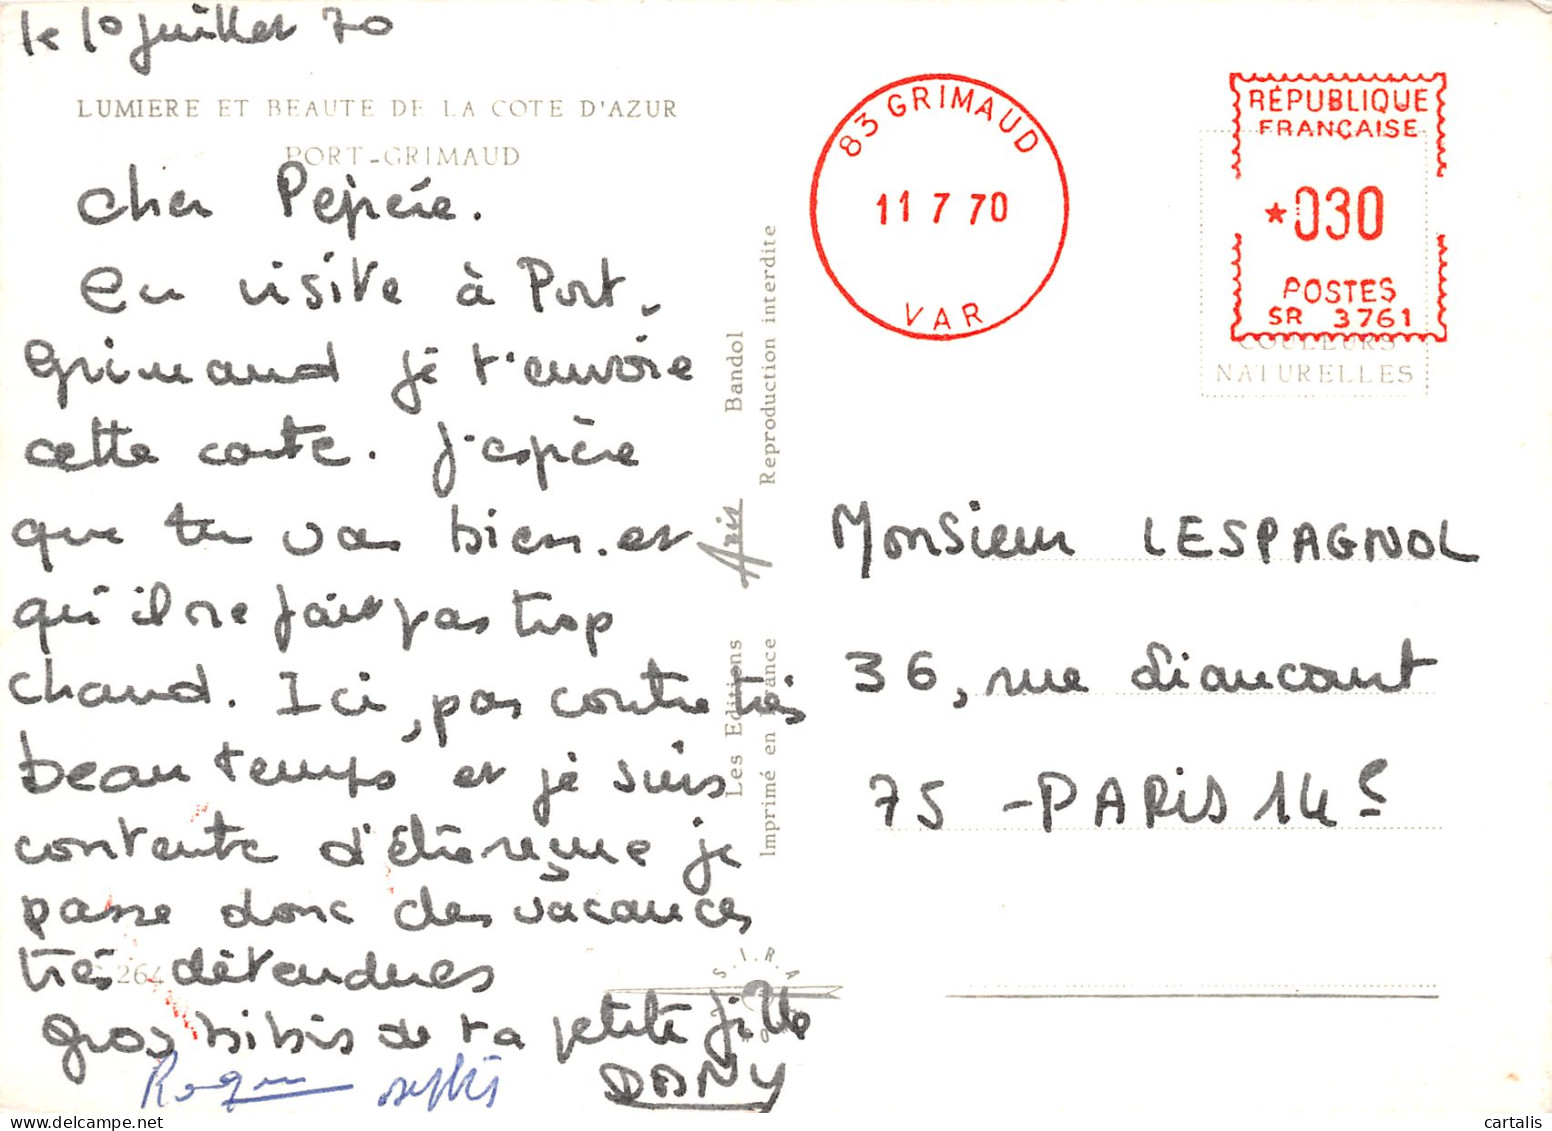 le 10 juillet 70
LUMIERE ET BEAUTE DE LA COTE D'AZUR
PORT-GRIMAUD
Cher Pépère.
En visite à Port-
Grimaud je t'envoie
cette carte. J'espère
que tu vas bien et
qu'il ne fait pas trop
chaud. Ici, par contre très
beau temps et je suis
contente d'être venue je
passe donc des vacances
très détendues
264
Gros bibis de ta petite fille
DANY
Les Editions Aris Bandol
Imprimé en France Reproduction interdite
S.I.R.A.
83 GRIMAUD
11 7 70
VAR
RÉPUBLIQUE
FRANÇAISE
*030
POSTES
SR 3761
COULEURS
NATURELLES
Monsieur LESPAGNOL
36, rue Liancourt
75 - PARIS 14e
cartalis